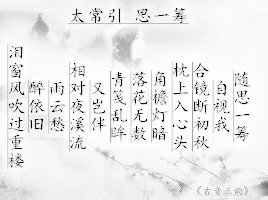 太常引 思一筹
随思一筹
自视我
合镜断初秋
枕上入心头
角檐灯暗
落花无数
青笺乱眸
又岂伴
相对夜溪流
雨云愁
醉依旧
泪窗风吹过重楼